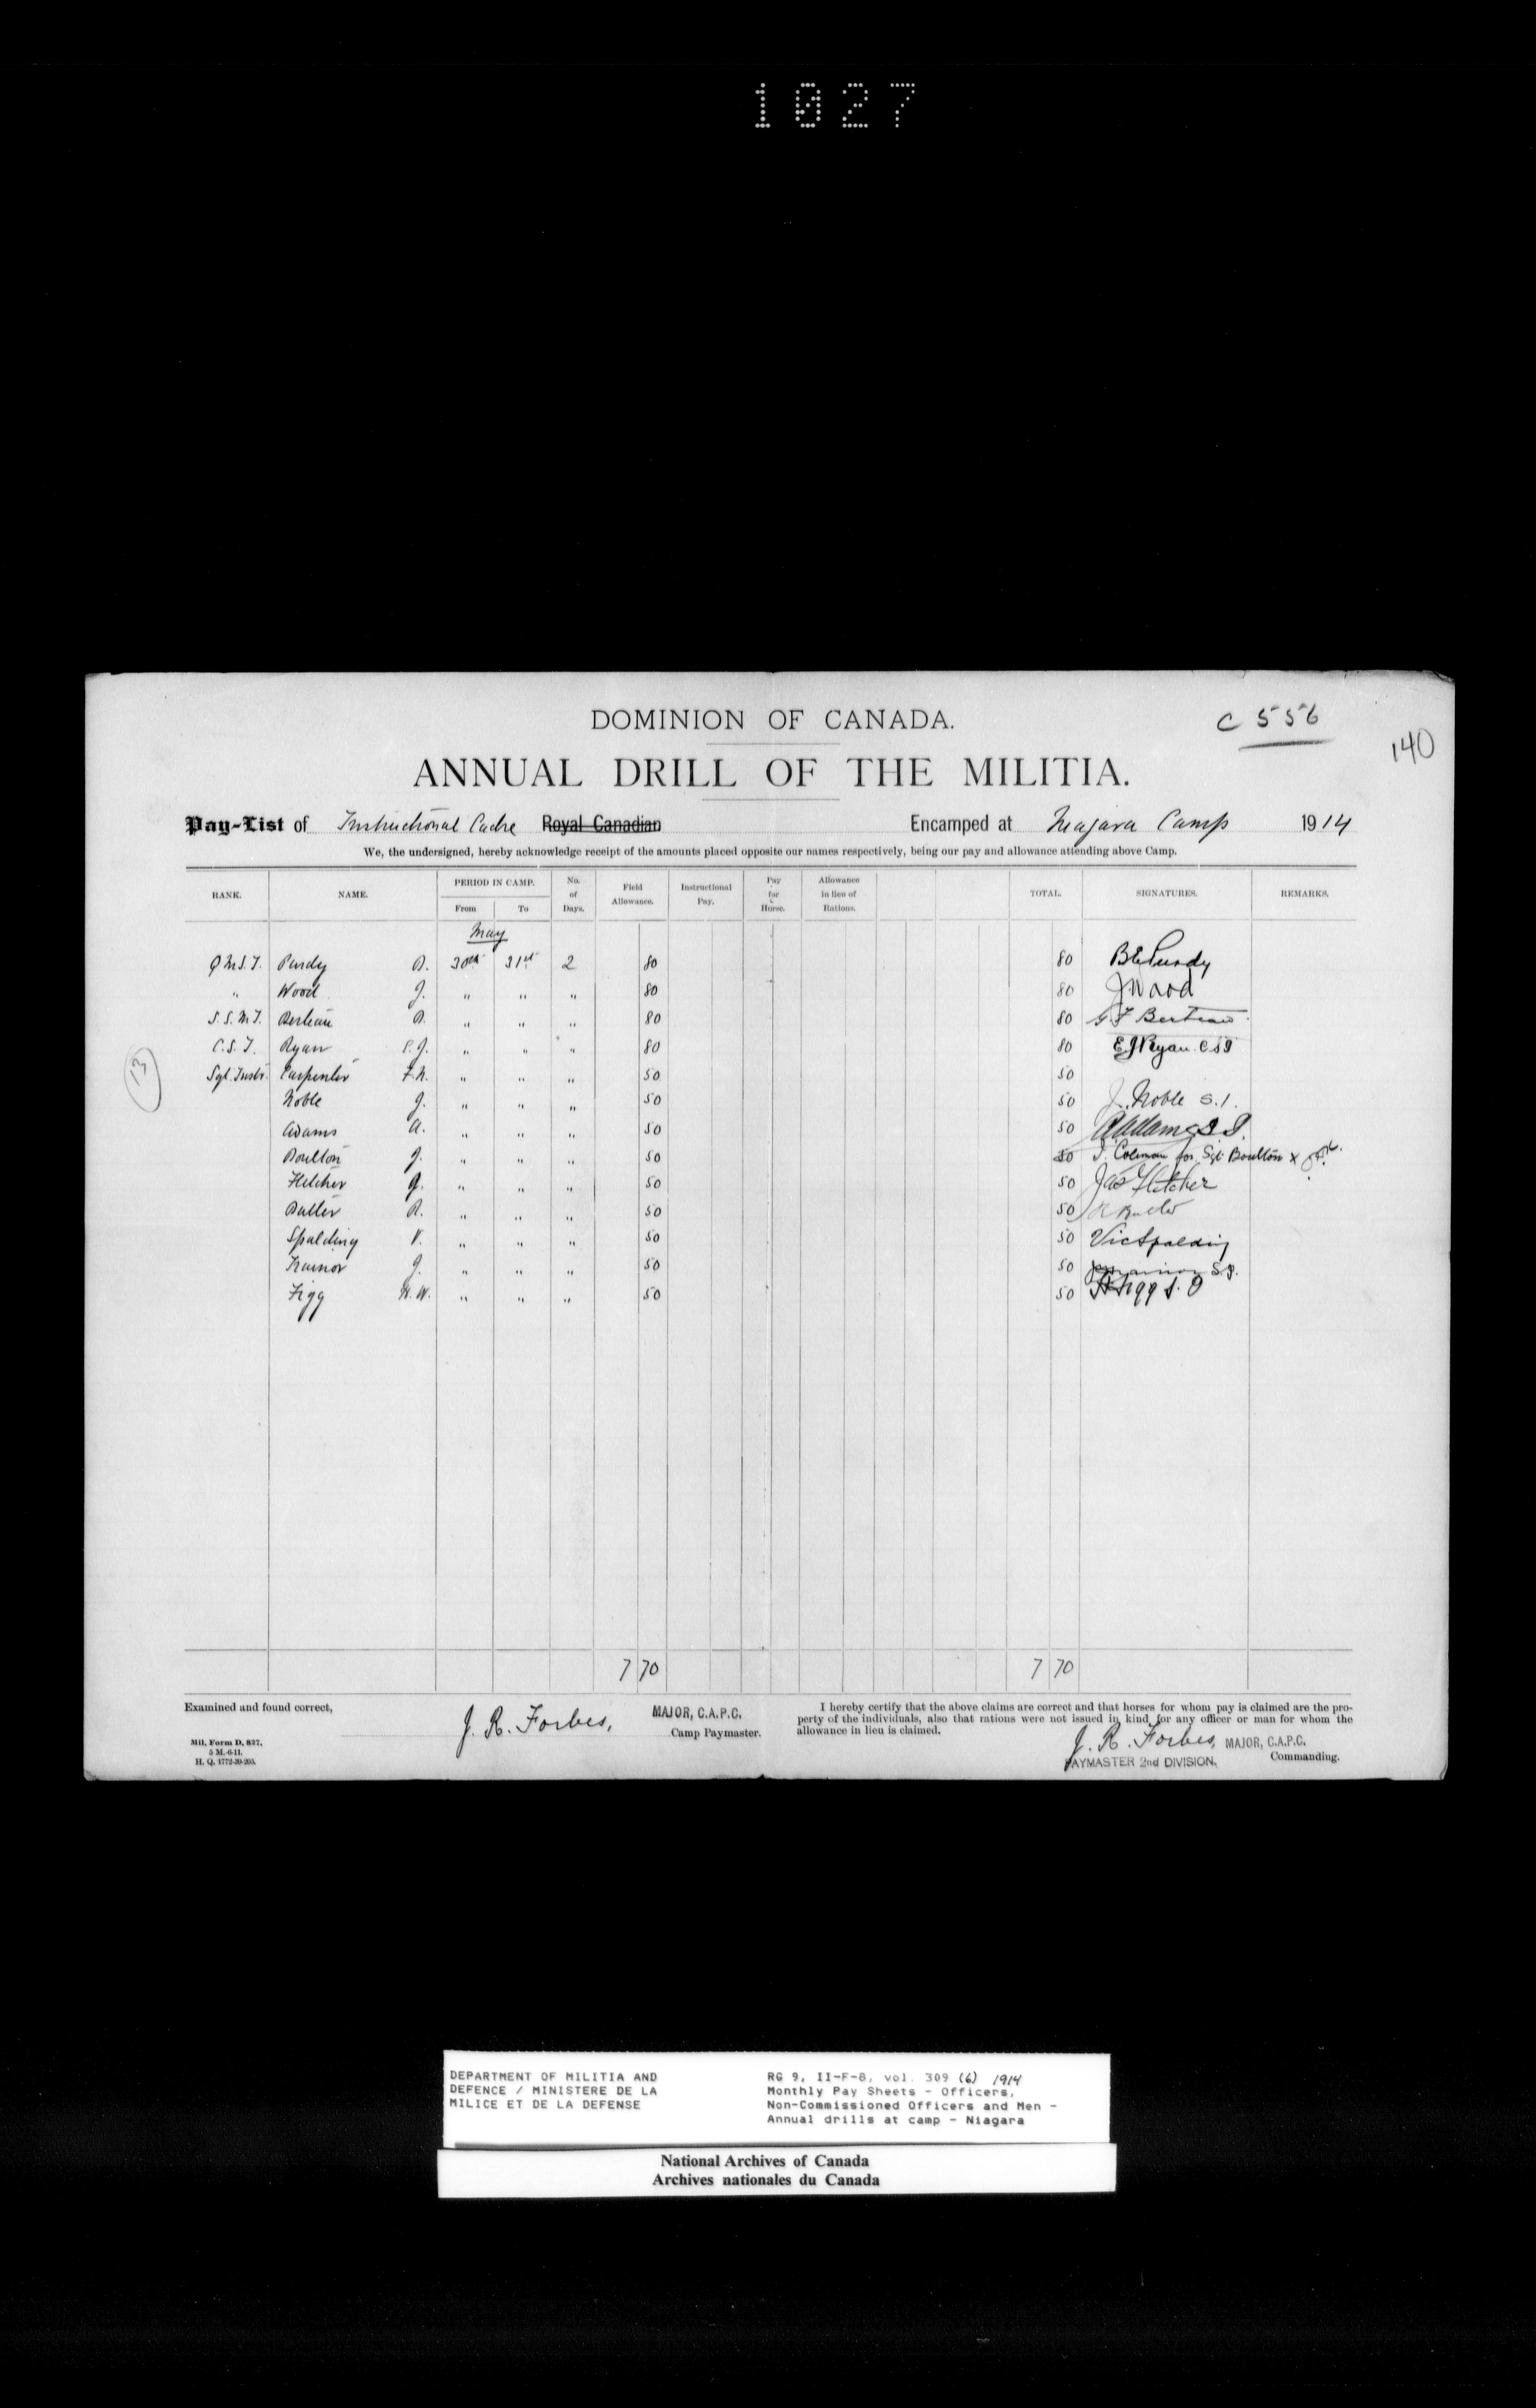 1027
DOMINION OF CANADA.
C 556
140
ANNUAL DRILL OF THE MILITIA.
Pay-List of Instructional Cadre Royal Canadian Encamped at Niagara Camp 1914
We, the undersigned, hereby acknowledge receipt of the amounts placed opposite our names respectively, being our pay and allowance attending above Camp.
RANK. NAME. PERIOD IN CAMP. From To No. of Days. Field Allowance. Instructional Pay. Pay for Horse. Allowance in lieu of Rations. TOTAL. SIGNATURES. REMARKS.
May
Q.M.S.I. Purdy B. 30th 31st 2 80 80 B E Purdy
" Wood J. " " " 80 80 J Wood
S.S.M.I. " " " 80 80 G F Bertram
C.S.I. Ryan E.J. " " " 80 80 E J Ryan C S I
Sgt. Instr. Carpenter F.N. " " " 50 50
Noble J. " " " 50 50 J. Noble S.I.
Adams A. " " " 50 50 A Adams S I.
13
Boulton J. " " " 50 50 J. Coleman for Sgt Boulton x
Fletcher J. " " " 50 50 Jas Fletcher
Butler R. " " " 50 50 R Butler
Spalding V. " " " 50 50 Vic Spalding
Trainor J. " " " 50 50 S.I.
Figg W.W. " " " 50 50 Figg S. I
7 70 7 70
Examined and found correct,
J. R. Forbes, MAJOR, C.A.P.C.
Camp Paymaster.
I hereby certify that the above claims are correct and that horses for whom pay is claimed are the property of the individuals, also that rations were not issued in kind for any officer or man for whom the allowance in lieu is claimed.
J. R. Forbes, MAJOR, C.A.P.C.
PAYMASTER 2nd DIVISION.
Commanding.
Mil. Form D. 837.
5 M.-6-11.
H. Q. 1772-39-205.
DEPARTMENT OF MILITIA AND
DEFENCE / MINISTERE DE LA
MILICE ET DE LA DEFENSE
RG 9, II-F-8, vol. 309 (6) 1914
Monthly Pay Sheets - Officers,
Non-Commissioned Officers and Men -
Annual drills at camp - Niagara
National Archives of Canada
Archives nationales du Canada